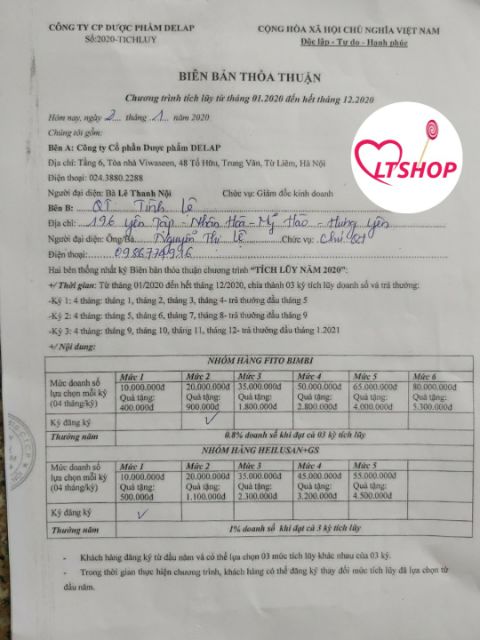 CÔNG TY CP DƯỢC PHẨM DELAP
Số:2020-TICHLUY
CỘNG HÒA XÃ HỘI CHỦ NGHĨA VIỆT NAM
Độc lập - Tự do - Hạnh phúc
BIÊN BẢN THỎA THUẬN
Chương trình tích lũy từ tháng 01.2020 đến hết tháng 12.2020
LTSHOP
Hôm nay, ngày 2 tháng 1 năm 2020
Chúng tôi gồm:
Bên A: Công ty Cổ phần Dược phẩm DELAP
Địa chỉ: Tầng 6, Tòa nhà Viwaseen, 48 Tố Hữu, Trung Văn, Từ Liêm, Hà Nội
Điện thoại: 024.3880.2288
Người đại diện: Bà Lê Thanh Nội Chức vụ: Giám đốc kinh doanh
Bên B: QT. Tình Lê
Địa chỉ: 196 Yên Tập - Nhân Hòa - Mỹ Hào - Hưng Yên
Người đại diện: Ông/Bà Nguyễn Thị Lê Chức vụ: Chủ
Điện thoại:
Hai bên thống nhất ký Biên bản thỏa thuận chương trình "TÍCH LŨY NĂM 2020":
+/ Thời gian: Từ tháng 01/2020 đến hết tháng 12/2020, chia thành 03 kỳ tích lũy doanh số và trả thưởng:
-Kỳ 1: 4 tháng: tháng 1, tháng 2, tháng 3, tháng 4- trả thưởng đầu tháng 5
-Kỳ 2: 4 tháng: tháng 5, tháng 6, tháng 7, tháng 8- trả thưởng đầu tháng 9
-Kỳ 3: 4 tháng: tháng 9, tháng 10, tháng 11, tháng 12- trả thưởng đầu tháng 1.2021
+/ Nội dung:
NHÓM HÀNG FITO BIMBI
Mức doanh số lựa chọn mỗi kỳ (04 tháng/kỳ) Mức 1 Mức 2 Mức 3 Mức 4 Mức 5 Mức 6
10.000.000đ 20.000.000đ 35.000.000đ 50.000.000đ 65.000.000đ 80.000.000đ
Quà tặng: Quà tặng: Quà tặng: Quà tặng: Quà tặng: Quà tặng:
400.000đ 900.000đ 1.800.000đ 2.800.000đ 4.000.000đ 5.300.000đ
Ký đăng ký ✓
Thưởng năm 0.8% doanh số khi đạt cả 03 kỳ tích lũy
NHÓM HÀNG HEILUSAN+GS
Mức doanh số lựa chọn mỗi kỳ (04 tháng/kỳ) Mức 1 Mức 2 Mức 3 Mức 4 Mức 5
10.000.000đ 20.000.000đ 35.000.000đ 45.000.000đ 55.000.000đ
Quà tặng: Quà tặng: Quà tặng: Quà tặng: Quà tặng:
500.000đ 1.100.000đ 2.300.000đ 3.200.000đ 4.500.000đ
Ký đăng ký ✓
Thưởng năm 1% doanh số khi đạt cả 3 kỳ tích lũy
- Khách hàng đăng ký từ đầu năm và có thể lựa chọn 03 mức tích lũy khác nhau của 03 kỳ.
- Trong thời gian thực hiện chương trình, khách hàng có thể đăng ký thay đổi mức tích lũy đã lựa chọn từ
đầu năm.